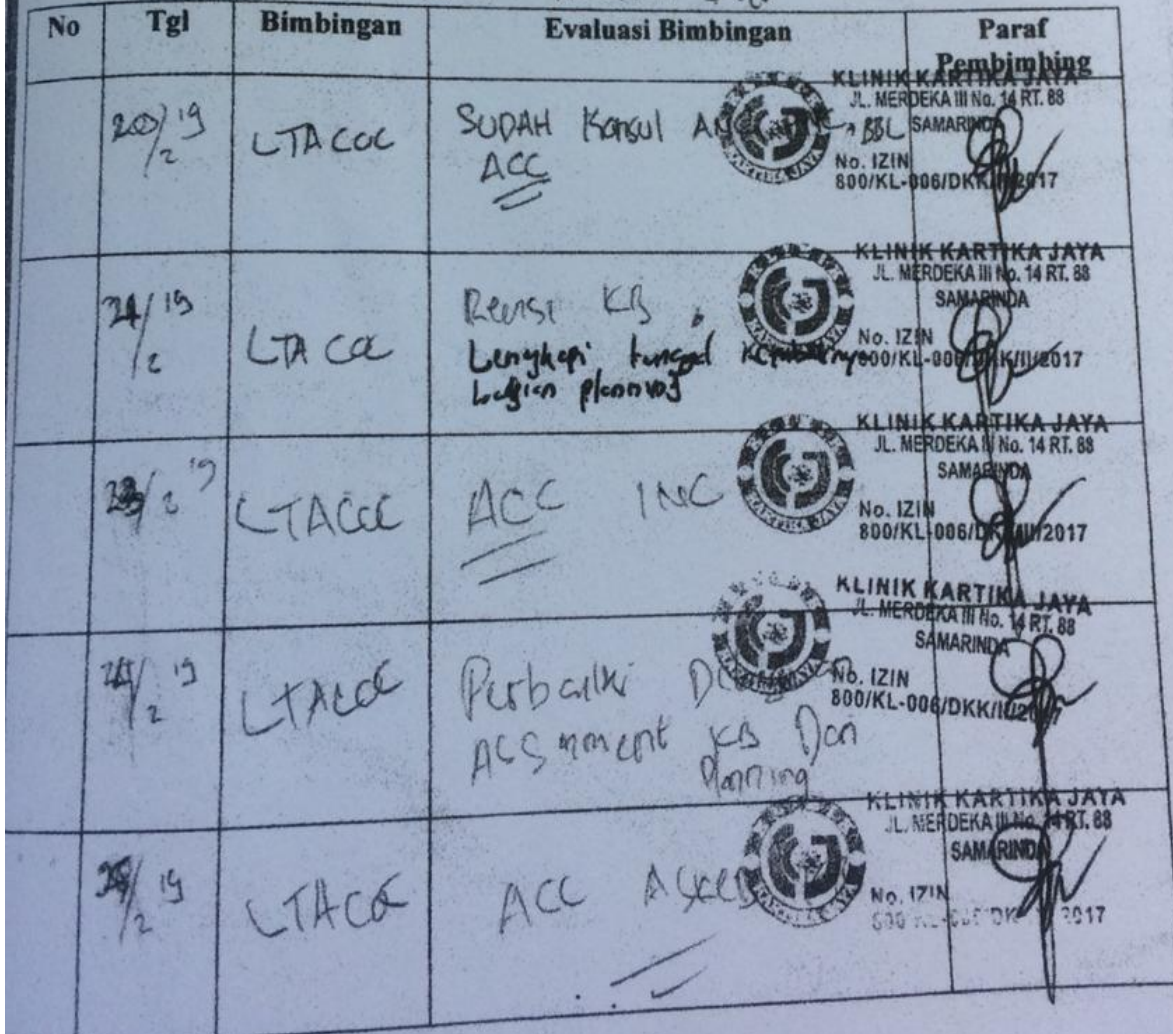 No Tgl Bimbingan Evaluasi Bimbingan Paraf
Pembimbing
20/2 19 LTA COC SUDAH Konsul BBL
ACC
KLINIK KARTIKA JAYA
JL. MERDEKA III No. 14 RT. 88
SAMARINDA
No. IZIN
800/KL-006/DKK/II/2017
/2 19 LTA COC Revisi KB
Lengkapi tanggal
bagian planning
KLINIK KARTIKA JAYA
JL. MERDEKA III No. 14 RT. 88
SAMARINDA
No. IZIN
800/KL-006/DKK/II/2017
/2 19 LTA COC ACC INC
KLINIK KARTIKA JAYA
JL. MERDEKA III No. 14 RT. 88
SAMARINDA
No. IZIN
800/KL-006/DKK/II/2017
/2 19 LTA COC Perbaiki
KB Dan
Planning
KLINIK KARTIKA JAYA
JL. MERDEKA III No. 14 RT. 88
SAMARINDA
No. IZIN
800/KL-006/DKK/II/2017
/2 19 LTA COC ACC
KLINIK KARTIKA JAYA
JL. MERDEKA III No. 14 RT. 88
SAMARINDA
No. IZIN
2017